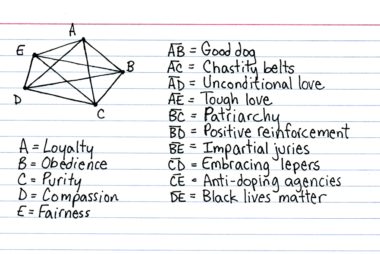 A
E
B
D
C
A = Loyalty
B = Obedience
C = Purity
D = Compassion
E = Fairness
AB = Good dog
AC = Chastity belts
AD = Unconditional love
AE = Tough love
BC = Patriarchy
BD = Positive reinforcement
BE = Impartial juries
CD = Embracing lepers
CE = Anti-doping agencies
DE = Black lives matter